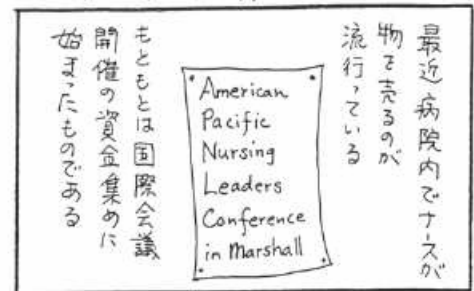 最近病院内でナースが
物を売るのが
流行っている
American
Pacific
Nursing
Leaders
Conference
in Marshall
もともとは国際会議
開催の資金集めに
始まったものである